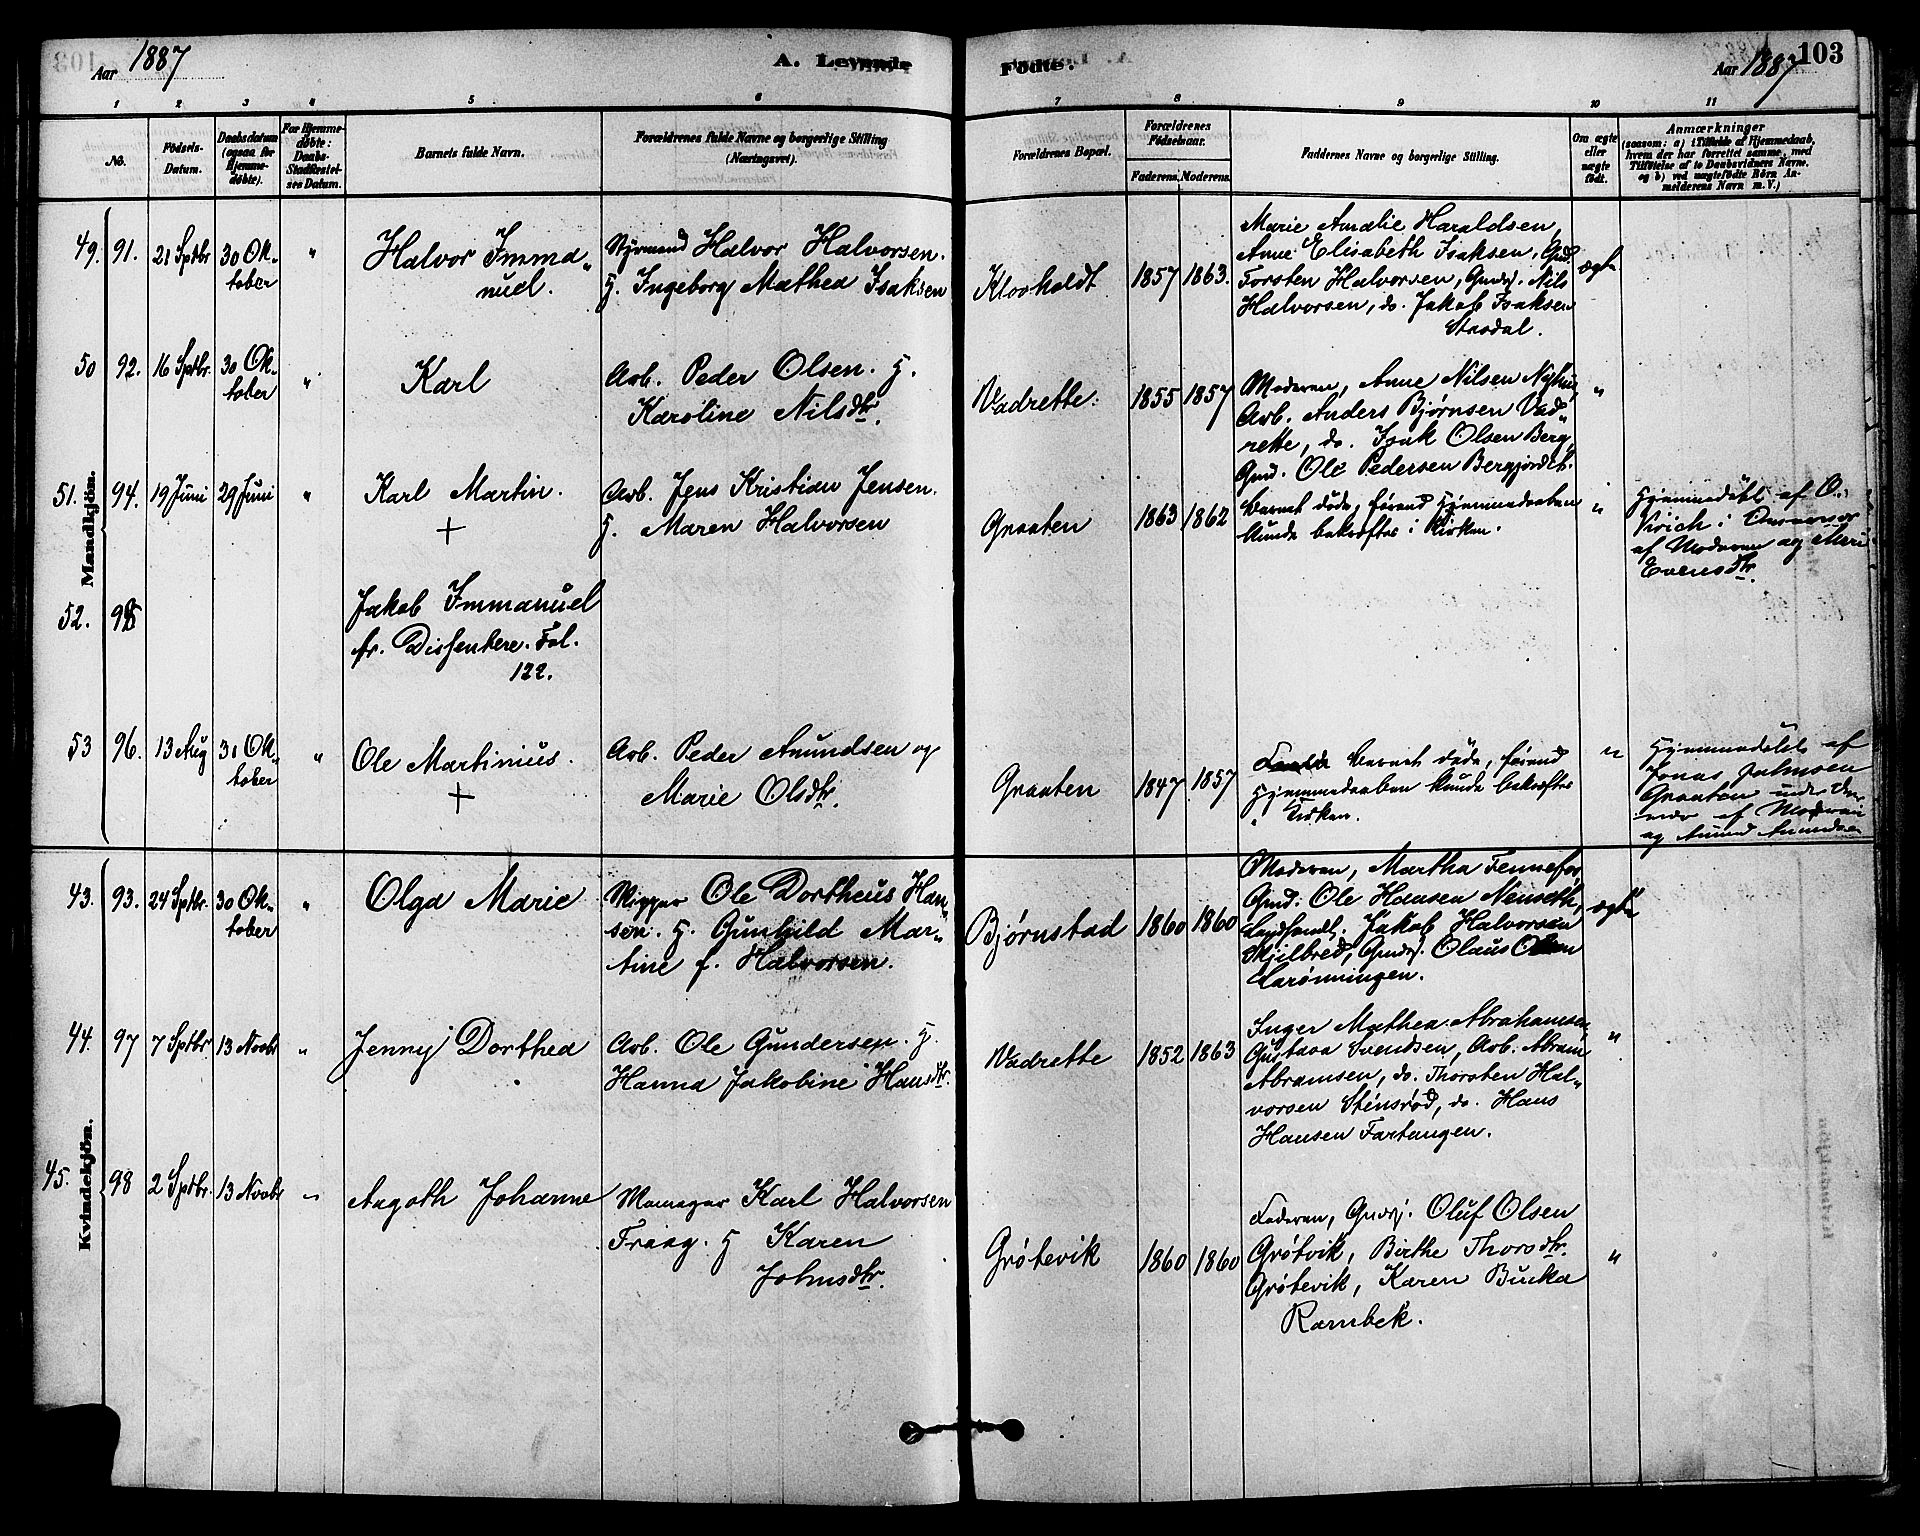 Aar 1887
A. Levende
Fødte.
Aar 1887
103
1 2 3 4 5 6 7 8 9 10 11
No.
Fødsels-
Datum.
Daabsdatum
(ogsaa for
Hjemme-
døbte).
For Hjemme-
døbte:
Daabs-
Stadfæstel-
ses Datum.
Barnets fulde Navn.
Forældrenes fulde Navne og borgerlige Stilling
(Næringsvei).
Forældrenes Bopæl.
Forældrenes
Fødselsaar.
Faderens. Moderens.
Faddernes Navne og borgerlige Stilling.
Om ægte
eller
uægte
født.
Anmærkninger
(saasom: a) i Tilfælde af Hjemmedaab,
hvem der har forrettet samme, med
Tilføielse af to Daabsvidners Navne,
og b) ved uægtefødte Børn An-
melderens Navn m. V.)
Mandkjön.
49. 91. 21 Sptbr 30 Ok-
tober
"
Halvor Imma-
nuel.
Styrmand Halvor Halvorsen.
H. Ingeborg Mathea Isaksen
Klovholdt
1857 1863.
Marie Amalie Haraldsen,
Anne Elisabeth Isaksen, Gud.
Torsten Halvorsen, Gmdsj. Nils
Halvorsen, do. Jakob Isaksen
Stasdal.
ægte
50 92. 16 Sptbr. 30 Ok-
tober
"
Karl
Arb. Peder Olsen. H.
Karoline Nilsdtr.
Vadrette.
1855 1857
Moderen, Anne Nilsen
Arb. Anders Bjørnsen Vad-
rette, do. Isak Olsen Berg,
Gmd. Ole Pedersen Bergjordet.
"
51. 94. 19 Juni 29 Juni
"
Karl Martin.
+
Arb. Jens Kristian Jensen.
H. Maren Halvorsen
Graaten
1863 1862
Barnet døde, førend Hjemmedaaben
kunde bekræftes i Kirken.
"
Hjemmedøbt af O.
i
af Moderen og
Evensdtr.
52. 95
Jakob Immanuel
fr. Dissentere. Fol.
122.
53 96. 13 Aug 30 Ok-
tober
"
Ole Martinius.
+
Arb. Peder Amundsen og
Marie Olsdtr.
Graaten
1847 1857
Barnet døde, førend
Hjemmedaaben kunde bekræftes
i Kirken.
"
Hjemmedøbt af
Jonas
Graaten under
af Moderen
og Amund Amundsen
Kvindekjön.
43. 93. 24 Sptbr. 30 Ok-
tober
"
Olga Marie
Skipper Ole Dortheus Han-
sen. H. Gunhild Mar-
tine f. Halvorsen.
Bjørnstad
1860 1860
Moderen, Martha Tennefos,
Gmd. Ole Hansen Nenseth,
Landhandl. Jakob Halvorsen
Skjilbred, Gmdsj. Olaus Olsen
Larønningen.
ægte
44. 97 7 Sptbr. 13 Novbr
"
Jenny Dorthea
Arb. Ole Gundersen. H.
Hanna Jakobine Hansdtr.
Vadrette
1852 1863
Inger Mathea Abrahamsen,
Gustava Svendsen, Arb. Abram
Abramsen, do. Thorsten Hal-
vorsen Stensrød, do. Hans
Hansen Fartangen.
"
45. 98 2 Sptbr. 13 Novbr
"
Aagoth Johanne
Karl Halvorsen
Traag. H Karen
Johnsdtr.
Grøtevik
1860 1860
Faderen, Gmdsj. Oluf Olsen
Grøtvik, Birthe Thorsdtr.
Grøtevik, Karen
Rambek.
"